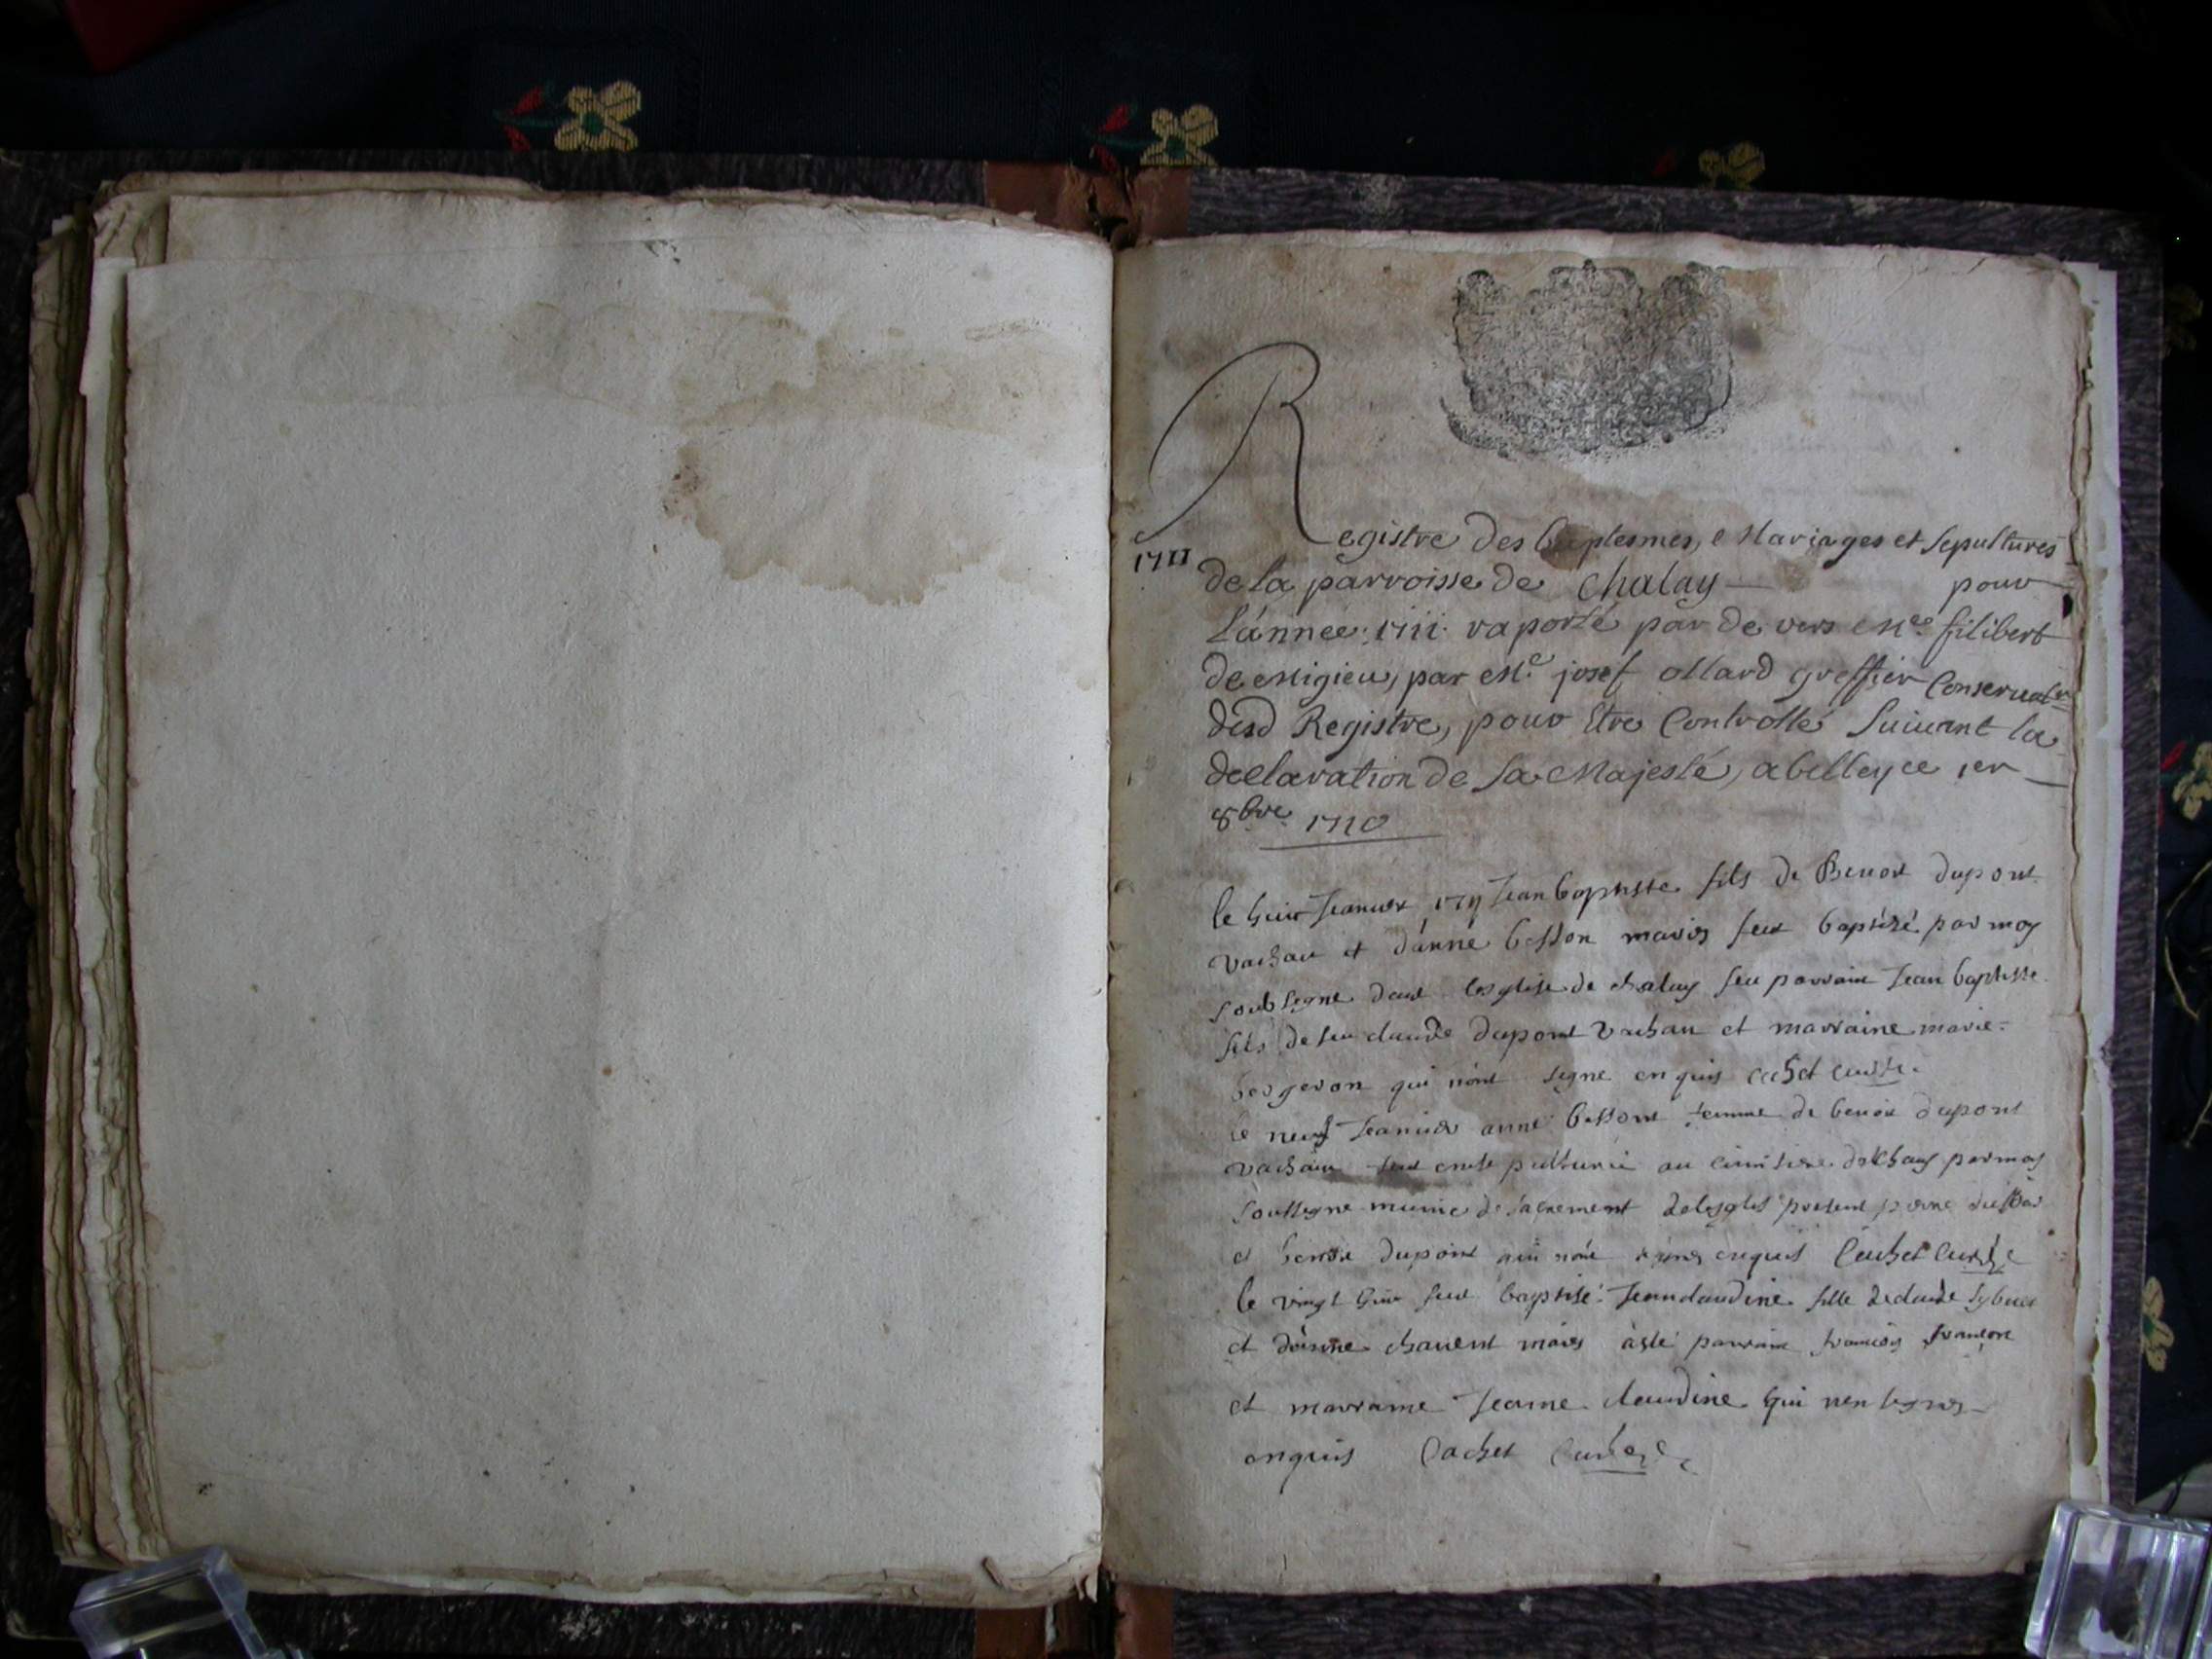 Registre des baptesmes, Mariages et Sepultures
1711
de la parroisse de Chalay pour
L'année 1711 raporté par de vers Me filibert
de Migieu, par Me josef ollard greffier Conservatr
desd Registre, pour Etre Controllé Suivant la
declaration de sa Majesté, a belley ce 1er
8bre 1710
le huit Jeanvier 1711 Jean baptiste fils de Benoit dupont
vachau et d'anne besson mariés feut baptisé par moy
soubsigne dans lesglise de chalay feu parrain Jean baptiste
fils de feu claude dupont vachau et marraine marie
bergeron qui n'ont signe enquis cachet curé
le neuf Jeanvier anne besson femme de benoit dupont
vachau feut ensepulturée au cimitiere de chalay par moy
soussigne munie de sacrement de lesglis present
et benoit dupont qui n'on signes enquis Cachet Curé
le vingt huit feut baptisé Jeanclaudine fille de claude
et d'anne chavent mariés a esté parrain francois
et marraine Jeanne claudine qui non signes
enquis Cachet Curé